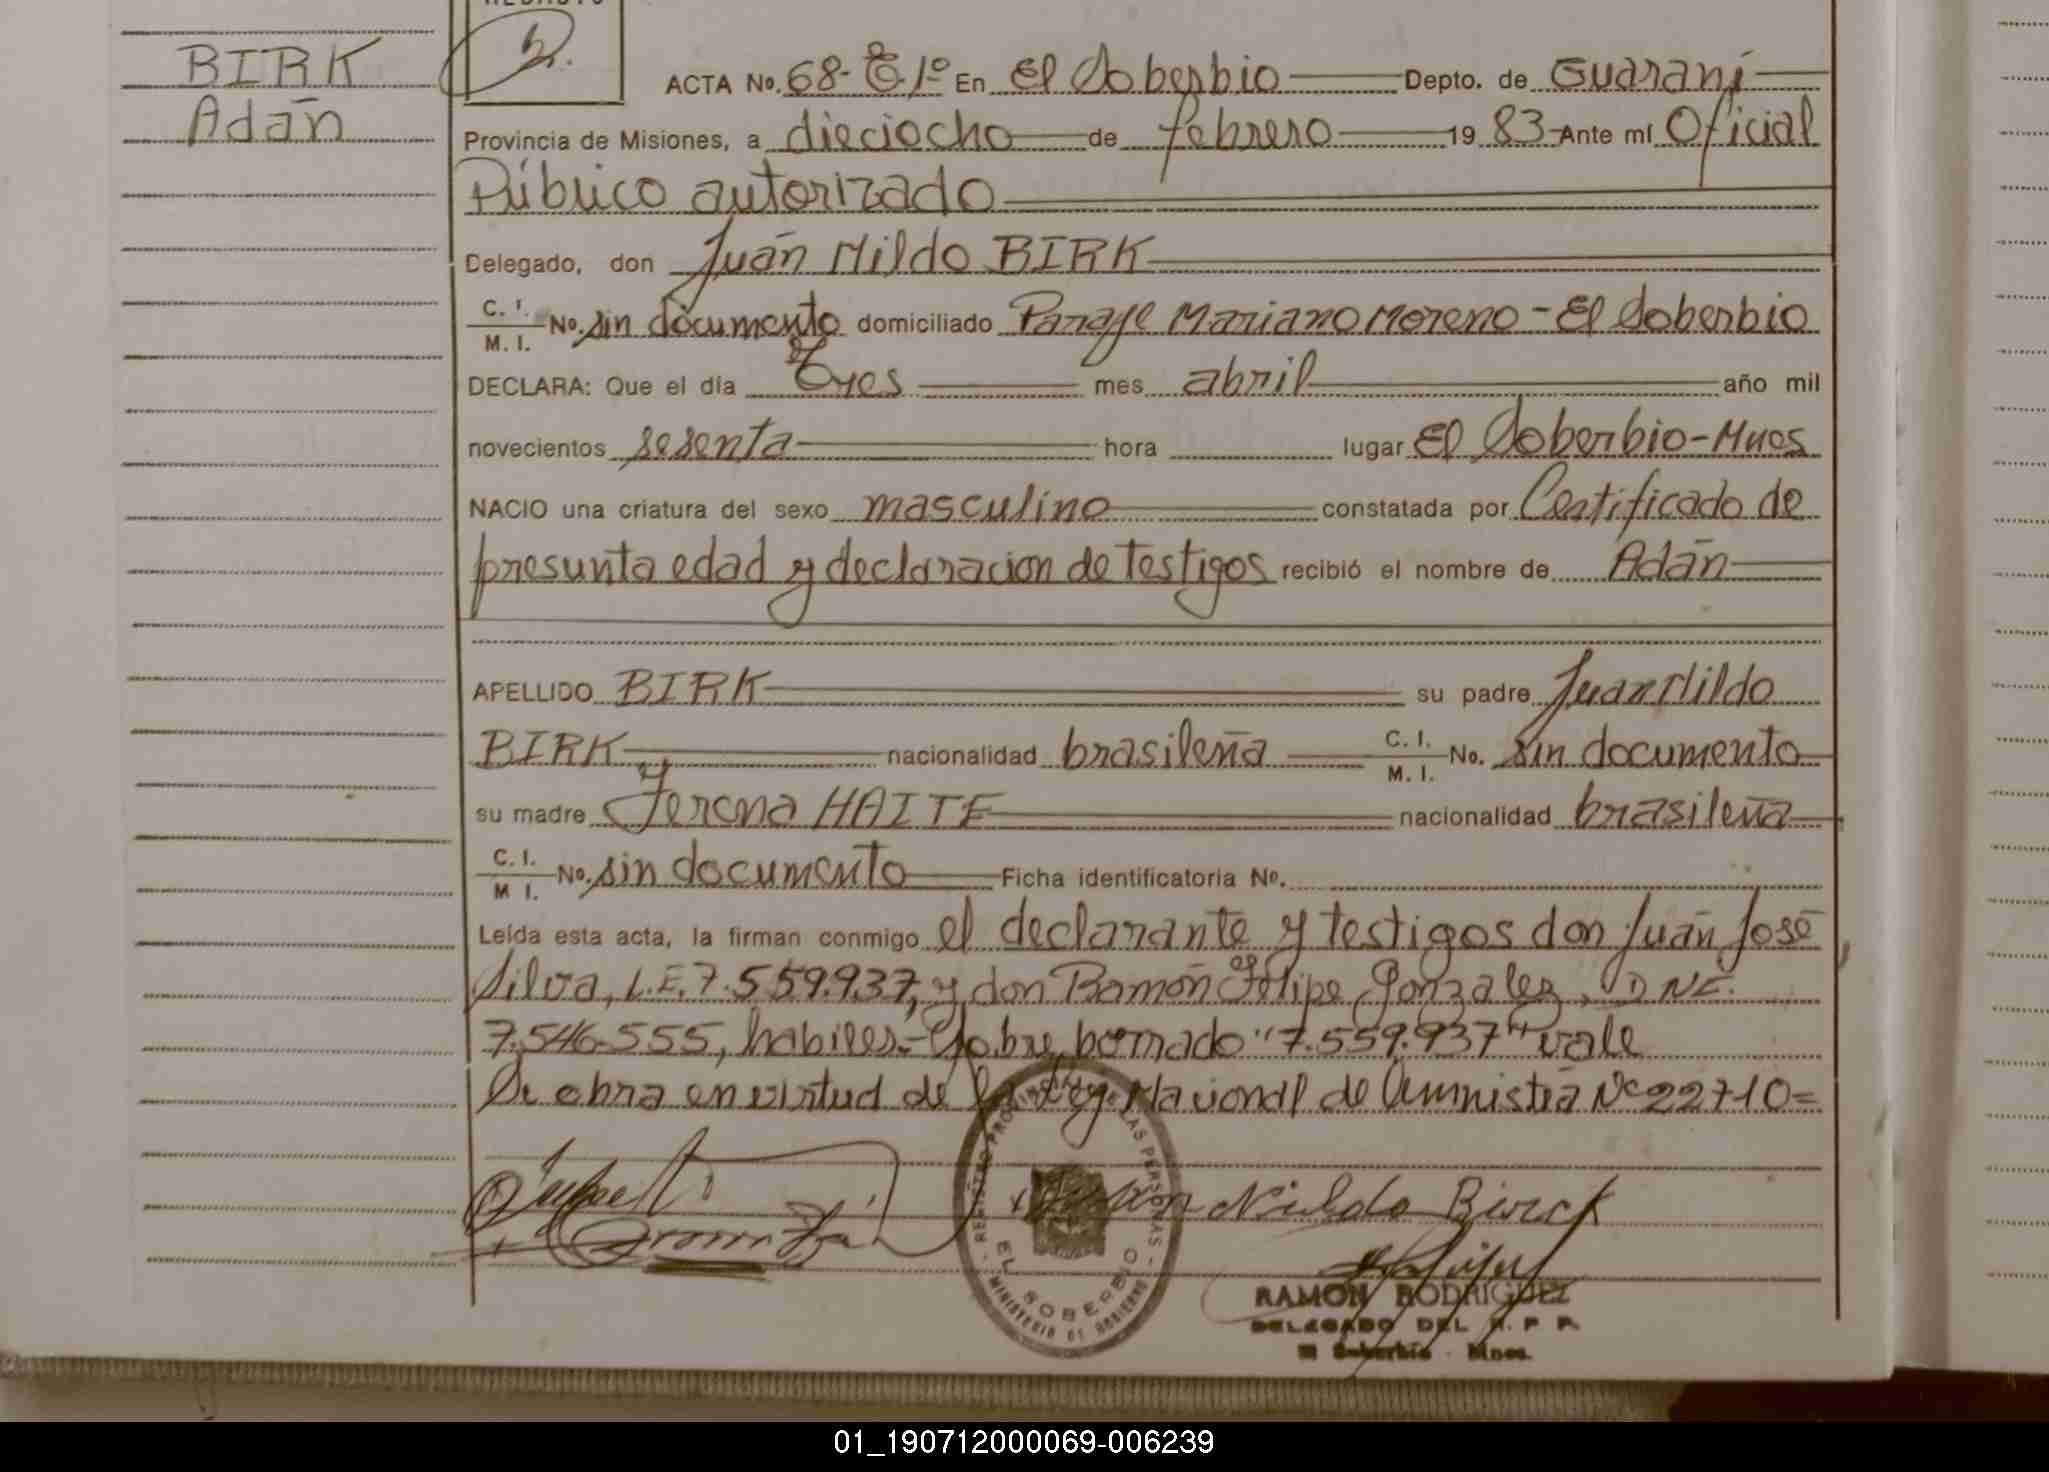 BIRK
Adán
ACTA No. 68- T.1º En El Soberbio Depto. de Guaraní
Provincia de Misiones, a dieciocho de febrero 19 83 Ante mí Oficial
Público autorizado
Delegado, don Juán Nildo BIRK
C. I.
M. I. No. sin documento domiciliado Paraje Mariano Moreno - El Soberbio
DECLARA: Que el día Tres mes abril año mil
novecientos sesenta hora lugar El Soberbio-Mnes
NACIO una criatura del sexo masculino constatada por Certificado de
presunta edad y declaracion de testigos recibió el nombre de Adán
APELLIDO BIRK su padre Juan Nildo
BIRK nacionalidad brasileña C. I. M. I. No. sin documento
y
su madre Terena HAITE nacionalidad brasileña
C. I.
M I. No. sin documento Ficha identificatoria No.
Leída esta acta, la firman conmigo el declarante y testigos don Juán José
Silva, L.E. 7.559.937, y don Ramón Felipe Gonzalez, DNI.
7.546.555, habiles.- Sobre borrado "7.559.937" vale
Se obra en virtud de la Ley Nacional de Amnistía Nº 22710=
Juan Nildo Birck
REGISTRO PROVINCIAL DE LAS PERSONAS
EL SOBERBIO
MINISTERIO DE GOBIERNO
RAMON RODRIGUEZ
DELEGADO DEL R. P. P.
El Soberbio - Mnes.
01_190712000069-006239